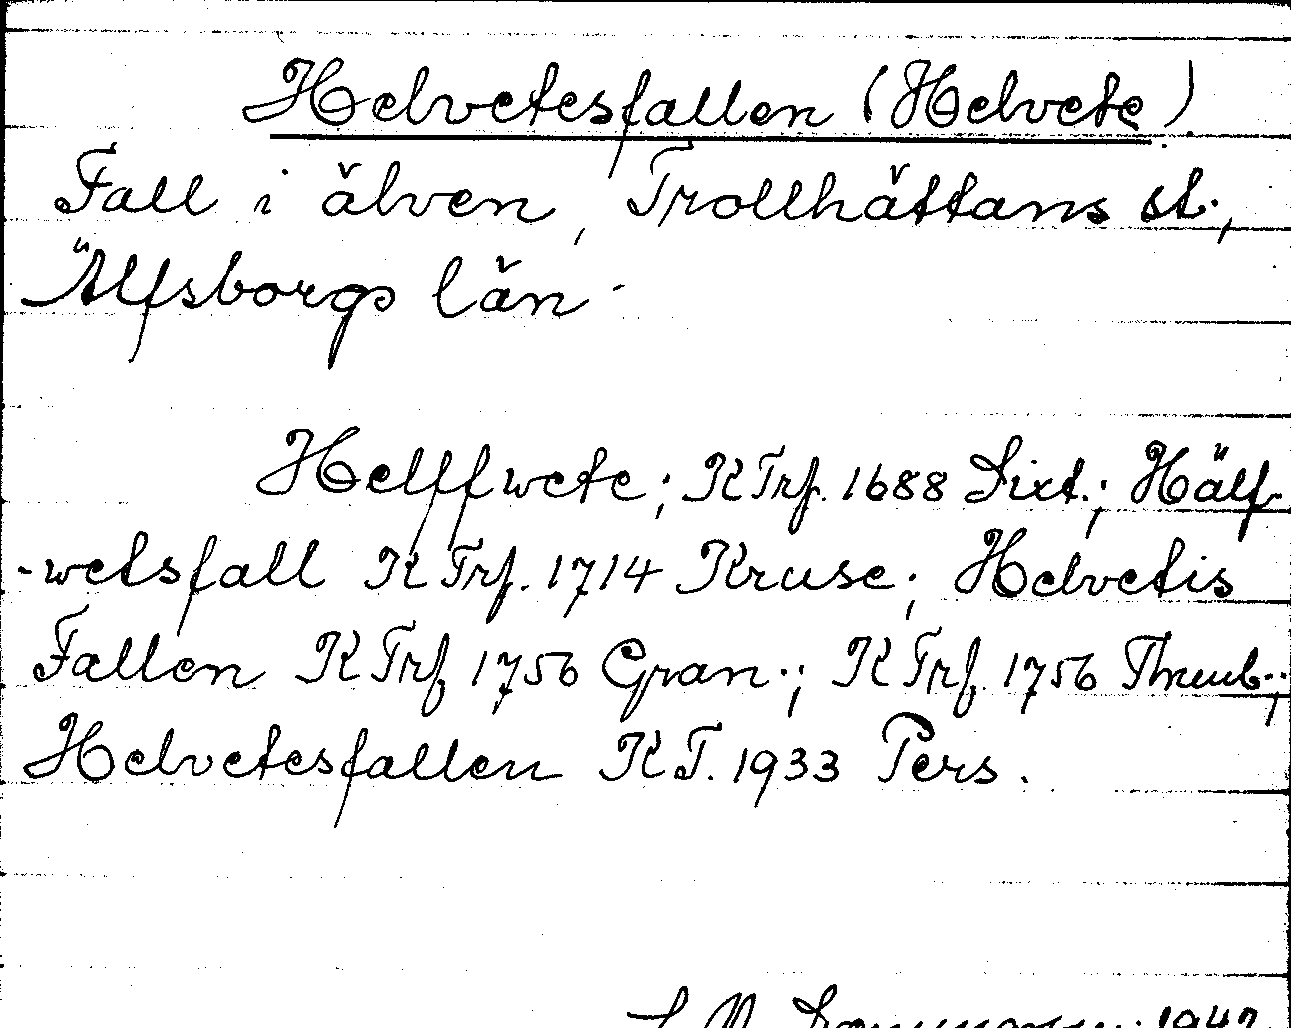 Helvetesfallen (Helvete)
Fall i älven, Trollhättans st.,
Älfsborgs län.
Helffwete; KTrf. 1688 Sixt.; Hälf-
-wetsfall KTrf. 1714 Kruse; Helvetis
Fallen KTrf 1756 Gran.; KTrf. 1756 Thunb.;
Helvetesfallen KT. 1933 Pers.